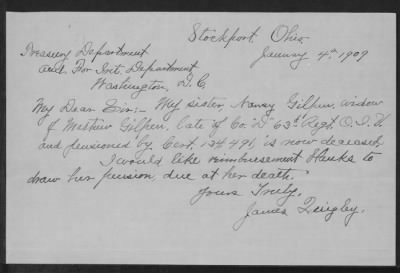 Stockport Ohio
January 4th 1909
Treasury Department
Aud. For Int. Department
Washington, D.C.
My Dear Sir;- My sister, Nancy Gilpen, widow
of Mathew Gilpen, late of Co. "D" 63d Regt. O.V.I.
and pensioned by Cert. 134491, is now deceased,
I would like reimbursement blanks to
draw her pension, due at her death.
Yours Truly,
James Quigley.